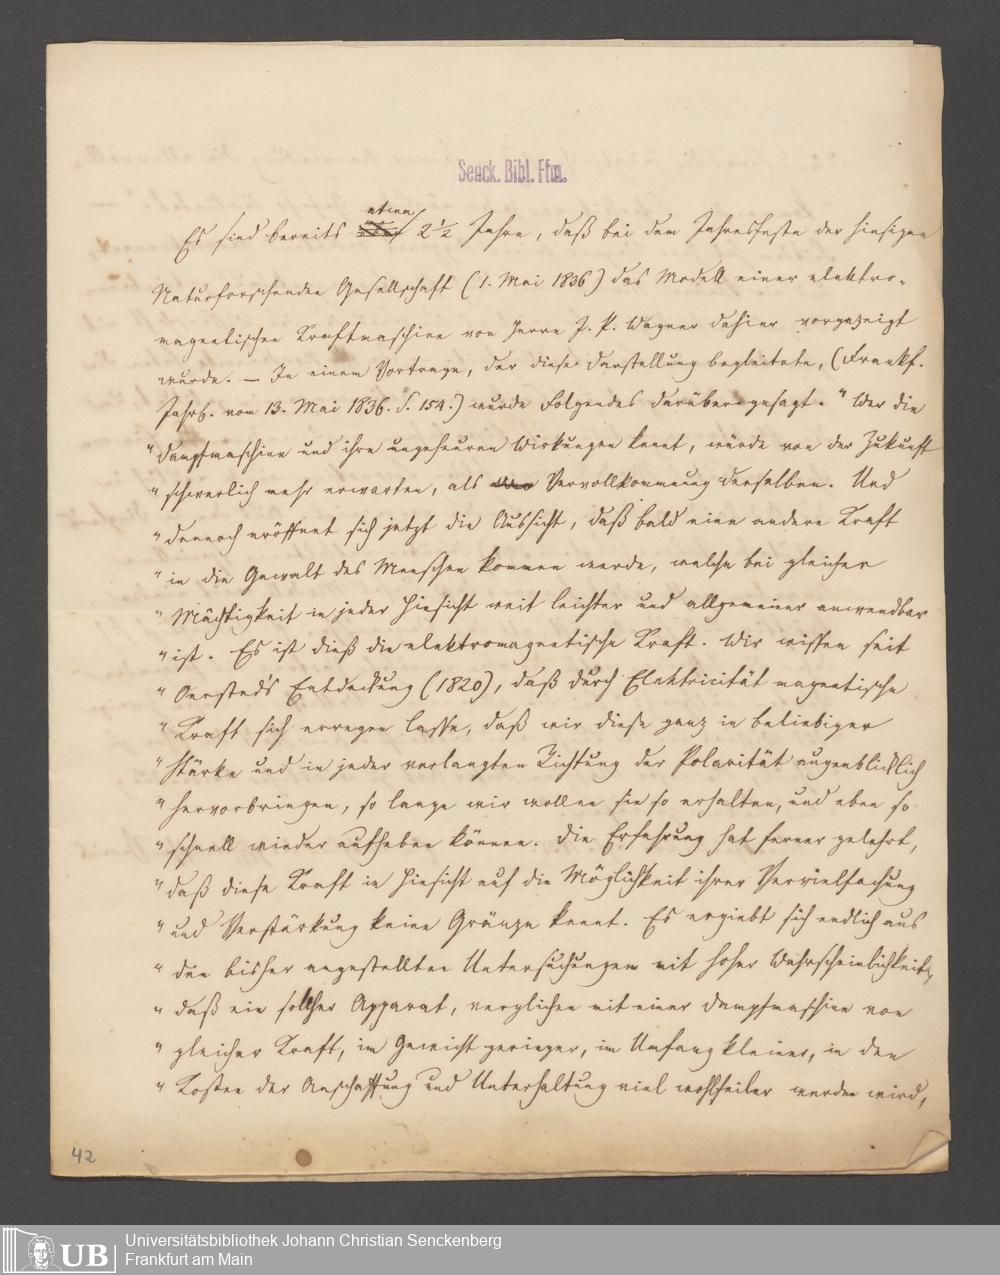 Senck. Bibl. Ffm.
etwa
Es sind bereits 2 1/2 Jahre, daß bei dem Jahresfeste der hiesigen
Naturforschenden Gesellschaft (1. Mai 1836) das Modell einer elektro-
magnetischen Kraftmaschine von Herrn J. P. Wagner dahier vorgezeigt
wurde. — In einem Vortrage, der diese Darstellung begleitete, (Frankf.
Jahrb. vom 13. Mai 1836. S. 154.) wurde Folgendes darüber gesagt. "Wer die
" Dampfmaschine und ihre ungeheuren Wirkungen kennt, würde von der Zukunft
" schwerlich mehr erwarten, als Vervollkommnung derselben. Und
" dennoch eröffnet sich jetzt die Aussicht, daß bald eine andere Kraft
" in die Gewalt des Menschen kommen werde, welche bei gleicher
" Mächtigkeit in jeder Hinsicht weit leichter und allgemeiner anwendbar
" ist. Es ist dieß die elektromagnetische Kraft. Wir wissen seit
" Oersted's Entdeckung (1820), daß durch Elektricität magnetische
" Kraft sich erregen lasse, daß wir diese ganz in beliebiger
" Stärke und in jeder verlangten Richtung der Polarität augenblicklich
" hervorbringen, so lange wir wollen sie so erhalten, und eben so
" schnell wieder aufheben können. Die Erfahrung hat ferner gelehrt,
" daß diese Kraft in Hinsicht auf die Möglichkeit ihrer Vervielfachung
" und Verstärkung keine Gränze kennt. Es ergiebt sich endlich aus
" den bisher angestellten Untersuchungen mit hoher Wahrscheinlichkeit,
" daß ein solcher Apparat, verglichen mit einer Dampfmaschine von
" gleicher Kraft, im Gewicht geringer, im Umfang kleiner, in den
" Kosten der Anschaffung und Unterhaltung viel wohlfeiler werden wird,
42
UB
Universitätsbibliothek Johann Christian Senckenberg
Frankfurt am Main